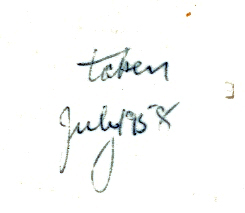 taken
July 1958